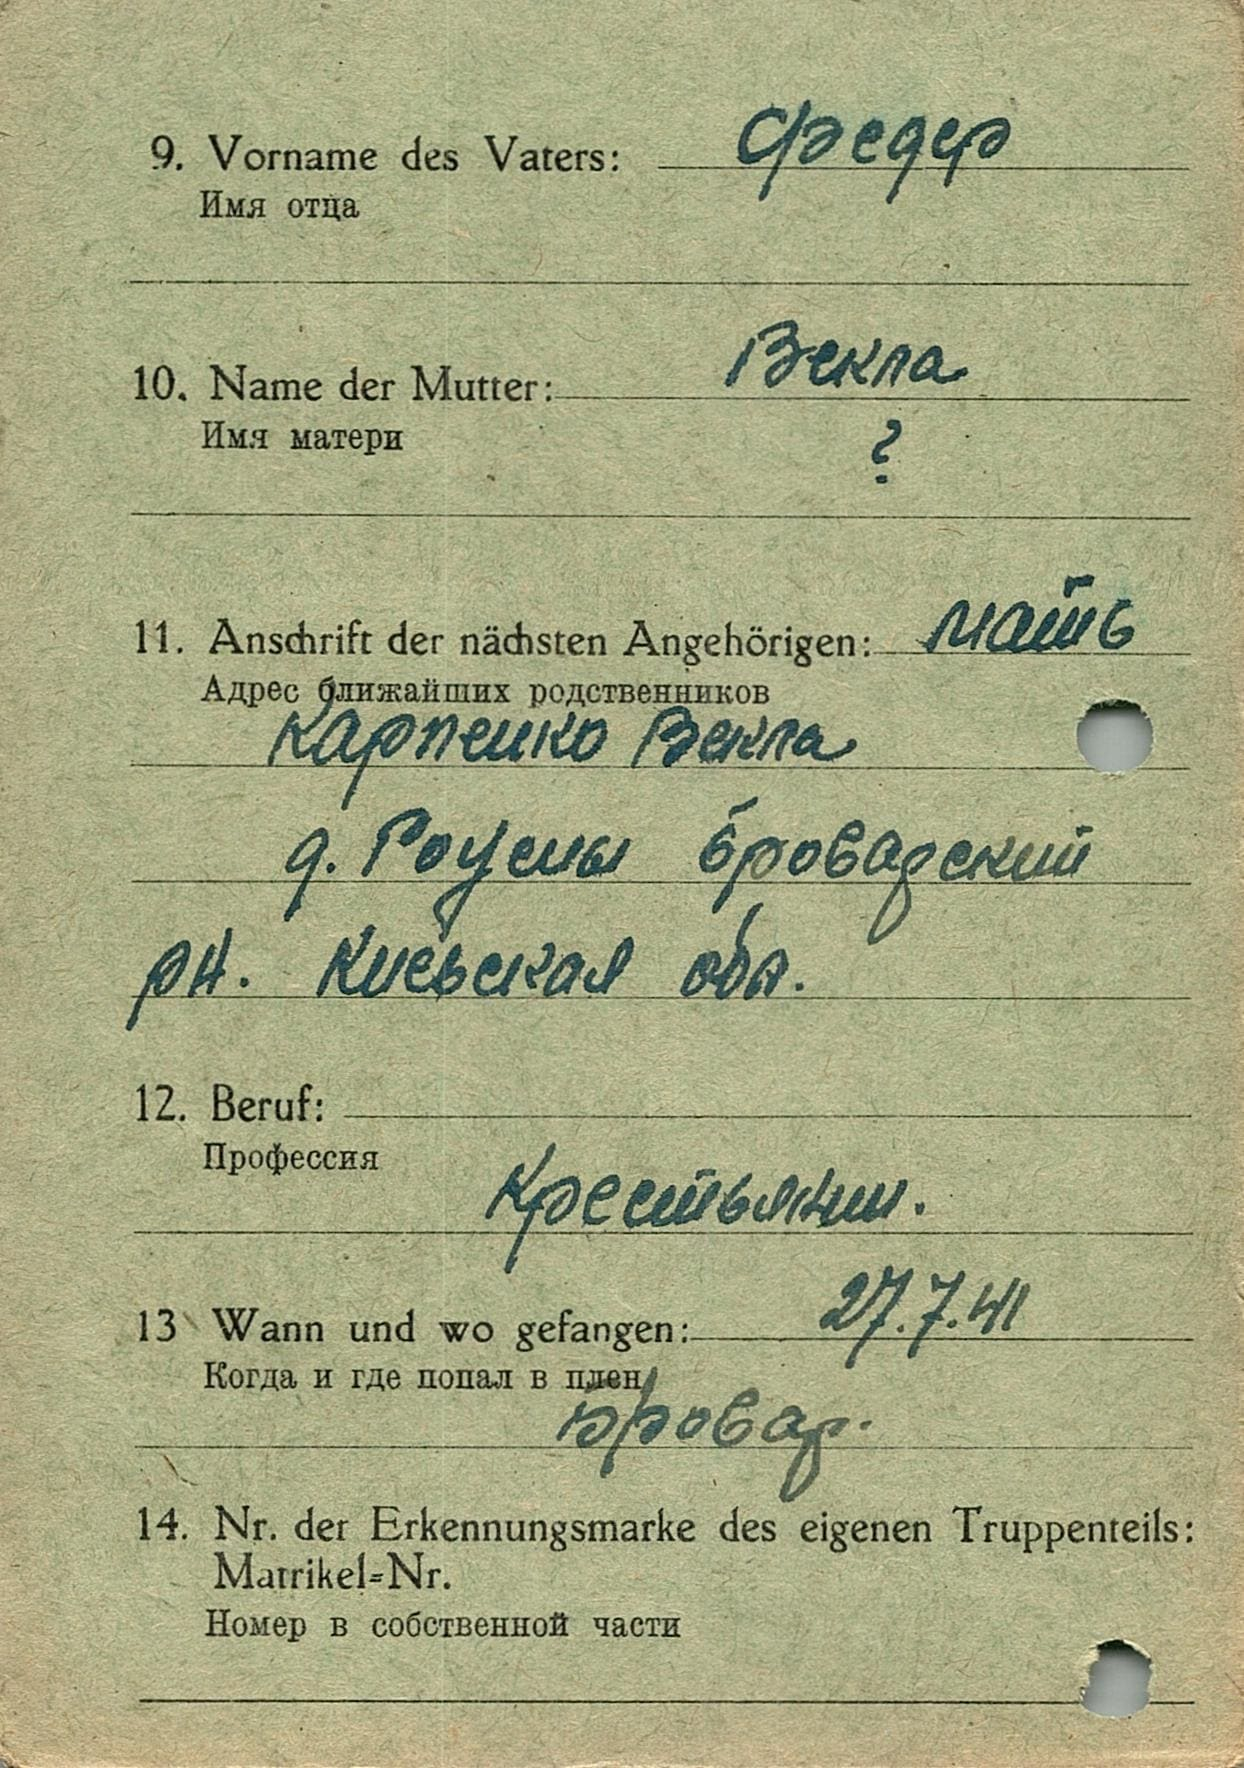 9. Vorname des Vaters: Федер
Имя отца
10. Name der Mutter: Векла
Имя матери ?
11. Anschrift der nächsten Angehörigen: мать
Адрес ближайших родственников
Карпенко Векла
д. Броварский
рн. Киевская обл.
12. Beruf:
Профессия
Крестьянин.
13 Wann und wo gefangen: 27.7.41
Когда и где попал в плен
Бровар.
14. Nr. der Erkennungsmarke des eigenen Truppenteils:
Matrikel-Nr.
Номер в собственной части